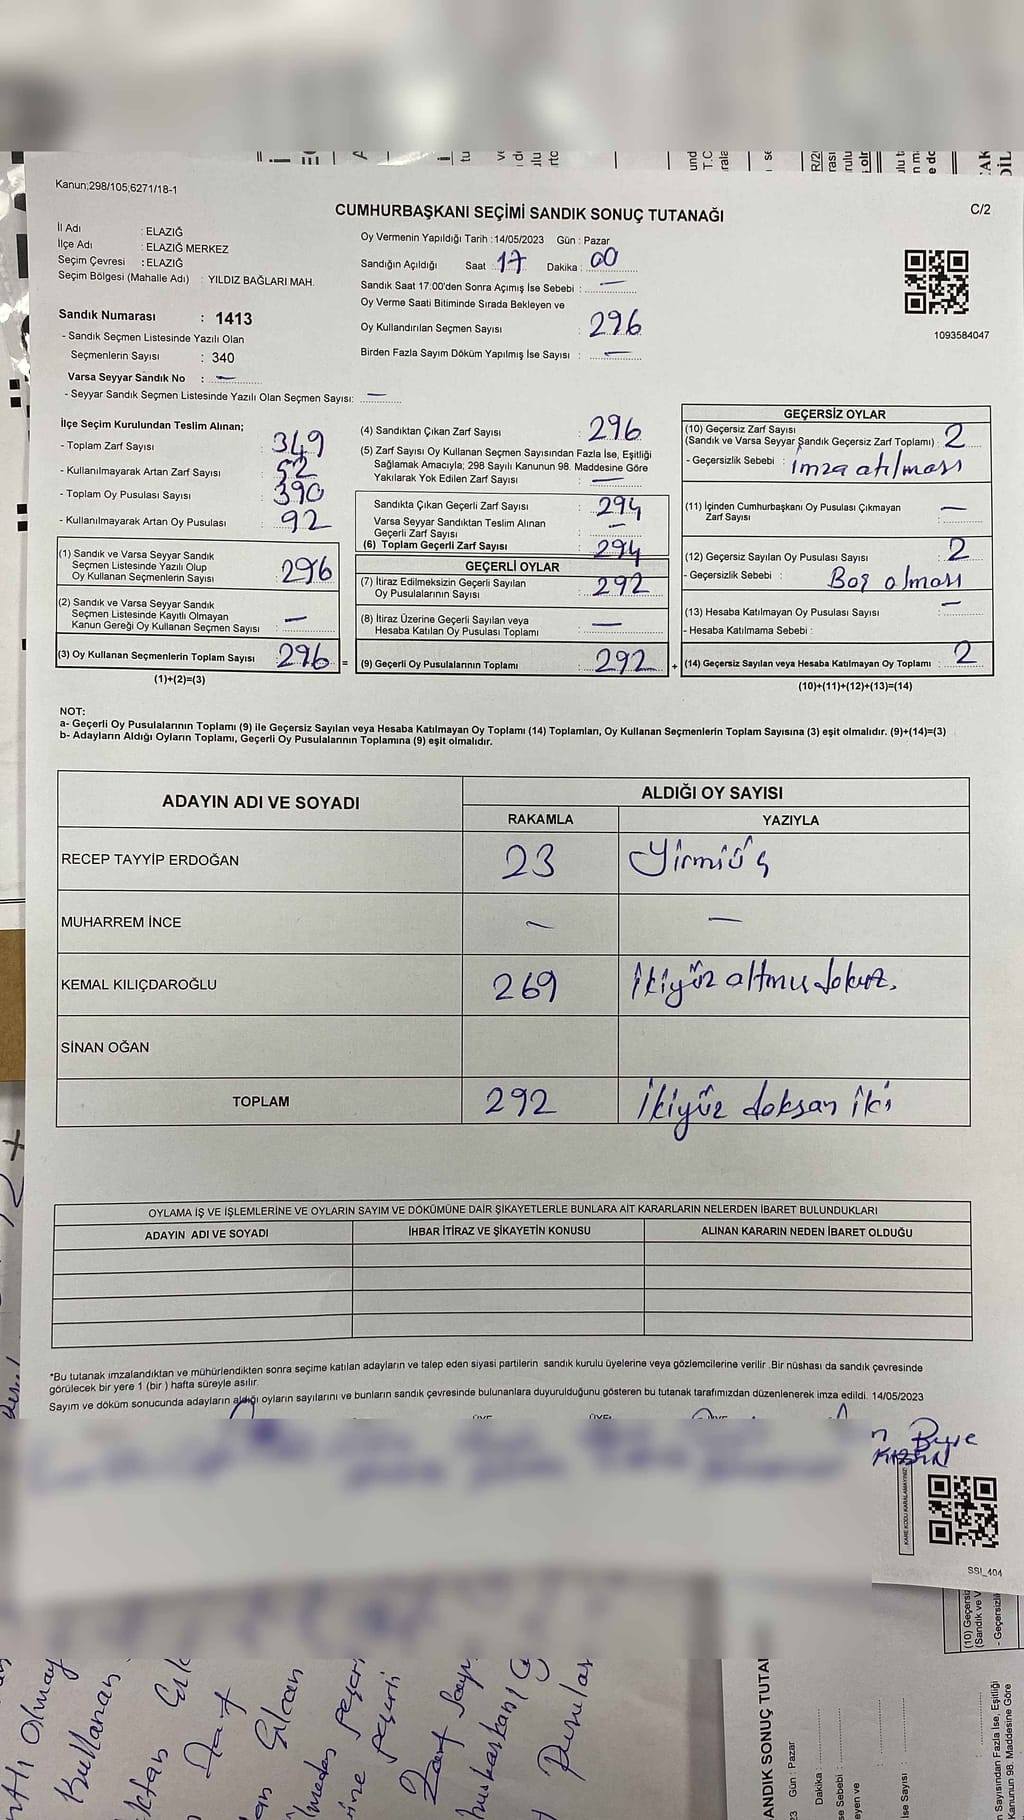 Kanun;298/105,6271/18-1
CUMHURBAŞKANI SEÇİMİ SANDIK SONUÇ TUTANAĞI
C/2
İl Adı : ELAZIĞ
İlçe Adı : ELAZIĞ MERKEZ
Seçim Çevresi : ELAZIĞ
Seçim Bölgesi (Mahalle Adı) : YILDIZ BAĞLARI MAH.
Sandık Numarası : 1413
- Sandık Seçmen Listesinde Yazılı Olan
Seçmenlerin Sayısı : 340
Varsa Seyyar Sandık No : —
- Seyyar Sandık Seçmen Listesinde Yazılı Olan Seçmen Sayısı: —
Oy Vermenin Yapıldığı Tarih :14/05/2023 Gün : Pazar
Sandığın Açıldığı Saat 17 Dakika : 00
Sandık Saat 17:00'den Sonra Açımış İse Sebebi : —
Oy Verme Saati Bitiminde Sırada Bekleyen ve
Oy Kullandırılan Seçmen Sayısı : 296
Birden Fazla Sayım Döküm Yapılmış İse Sayısı : —
1093584047
İlçe Seçim Kurulundan Teslim Alınan;
- Toplam Zarf Sayısı : 349
- Kullanılmayarak Artan Zarf Sayısı : 52
- Toplam Oy Pusulası Sayısı : 390
- Kullanılmayarak Artan Oy Pusulası : 92
(1) Sandık ve Varsa Seyyar Sandık
Seçmen Listesinde Yazılı Olup
Oy Kullanan Seçmenlerin Sayısı : 296
(2) Sandık ve Varsa Seyyar Sandık
Seçmen Listesinde Kayıtlı Olmayan
Kanun Gereği Oy Kullanan Seçmen Sayısı : —
(3) Oy Kullanan Seçmenlerin Toplam Sayısı : 296 =
(1)+(2)=(3)
(4) Sandıktan Çıkan Zarf Sayısı : 296
(5) Zarf Sayısı Oy Kullanan Seçmen Sayısından Fazla İse, Eşitliği
Sağlamak Amacıyla; 298 Sayılı Kanunun 98. Maddesine Göre
Yakılarak Yok Edilen Zarf Sayısı : —
Sandıkta Çıkan Geçerli Zarf Sayısı : 294
Varsa Seyyar Sandıktan Teslim Alınan
Geçerli Zarf Sayısı : —
(6) Toplam Geçerli Zarf Sayısı : 294
GEÇERLİ OYLAR
(7) İtiraz Edilmeksizin Geçerli Sayılan
Oy Pusulalarının Sayısı : 292
(8) İtiraz Üzerine Geçerli Sayılan veya
Hesaba Katılan Oy Pusulası Toplamı : —
(9) Geçerli Oy Pusulalarının Toplamı : 292 +
GEÇERSİZ OYLAR
(10) Geçersiz Zarf Sayısı
(Sandık ve Varsa Seyyar Sandık Geçersiz Zarf Toplamı) : 2
- Geçersizlik Sebebi : İmza atılması
(11) İçinden Cumhurbaşkanı Oy Pusulası Çıkmayan
Zarf Sayısı : —
(12) Geçersiz Sayılan Oy Pusulası Sayısı : 2
- Geçersizlik Sebebi : Boş olması
(13) Hesaba Katılmayan Oy Pusulası Sayısı : —
- Hesaba Katılmama Sebebi :
(14) Geçersiz Sayılan veya Hesaba Katılmayan Oy Toplamı : 2
(10)+(11)+(12)+(13)=(14)
NOT:
a- Geçerli Oy Pusulalarının Toplamı (9) ile Geçersiz Sayılan veya Hesaba Katılmayan Oy Toplamı (14) Toplamları, Oy Kullanan Seçmenlerin Toplam Sayısına (3) eşit olmalıdır. (9)+(14)=(3)
b- Adayların Aldığı Oyların Toplamı, Geçerli Oy Pusulalarının Toplamına (9) eşit olmalıdır.
ADAYIN ADI VE SOYADI ALDIĞI OY SAYISI
RAKAMLA YAZIYLA
RECEP TAYYİP ERDOĞAN 23 Yirmiüç
MUHARREM İNCE — —
KEMAL KILIÇDAROĞLU 269 İkiyüz altmış dokuz.
SİNAN OĞAN
TOPLAM 292 İkiyüz doksan iki
OYLAMA İŞ VE İŞLEMLERİNE VE OYLARIN SAYIM VE DÖKÜMÜNE DAİR ŞİKAYETLERLE BUNLARA AİT KARARLARIN NELERDEN İBARET BULUNDUKLARI
ADAYIN ADI VE SOYADI İHBAR İTİRAZ VE ŞİKAYETİN KONUSU ALINAN KARARIN NEDEN İBARET OLDUĞU
*Bu tutanak imzalandıktan ve mühürlendikten sonra seçime katılan adayların ve talep eden siyasi partilerin sandık kurulu üyelerine veya gözlemcilerine verilir .Bir nüshası da sandık çevresinde
görülecek bir yere 1 (bir ) hafta süreyle asılır.
Sayım ve döküm sonucunda adayların aldığı oyların sayılarını ve bunların sandık çevresinde bulunanlara duyurulduğunu gösteren bu tutanak tarafımızdan düzenlenerek imza edildi. 14/05/2023
SSI_404
Kullanan
Zarf
ANDIK SONUÇ TUTA
23 Gün : Pazar
Dakika :
(10) Geçersiz
(Sandık ve V
- Geçersizlik
n Sayısından Fazla İse, Eşitliği
Kanunun 98. Maddesine Göre